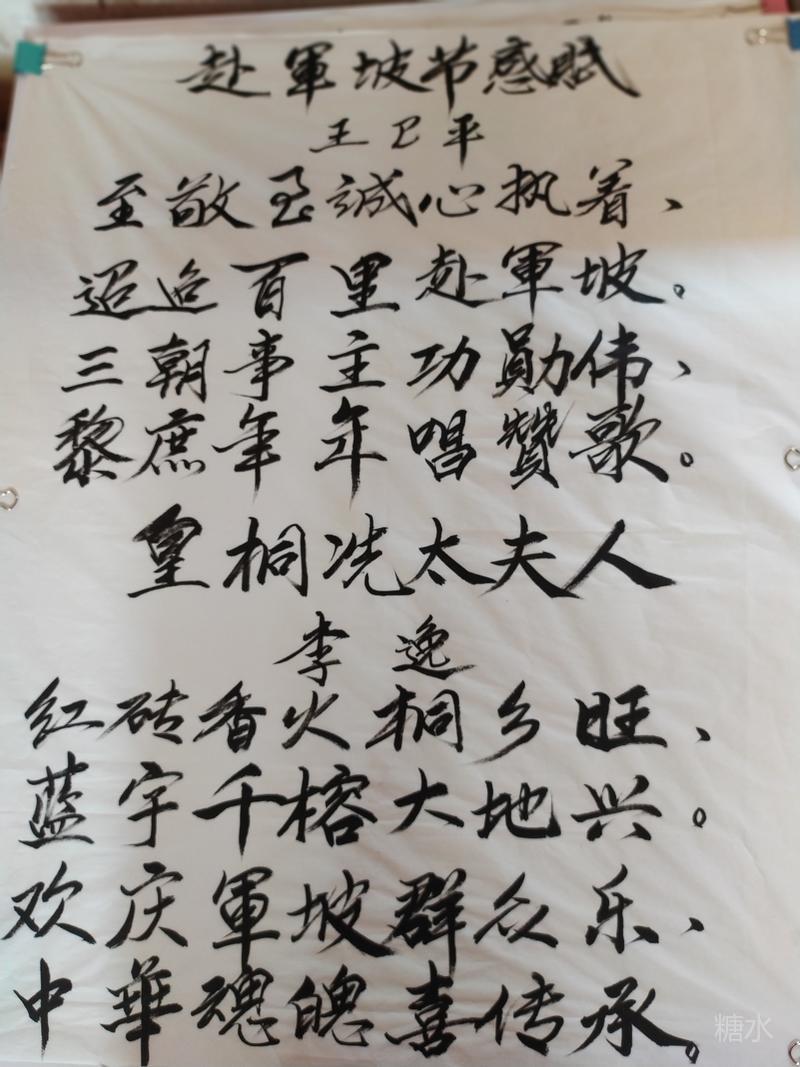 赴軍坡节感赋
王卫平
至敬至誠心执着、
迢迢百里赴軍坡。
三朝事主功勛伟、
黎庶年年唱赞歌。
皇桐冼太夫人
李逸
红砖香火桐乡旺、
蓝宇千榕大地兴。
欢庆軍坡群众乐、
中華魂魄喜传承。
糖水